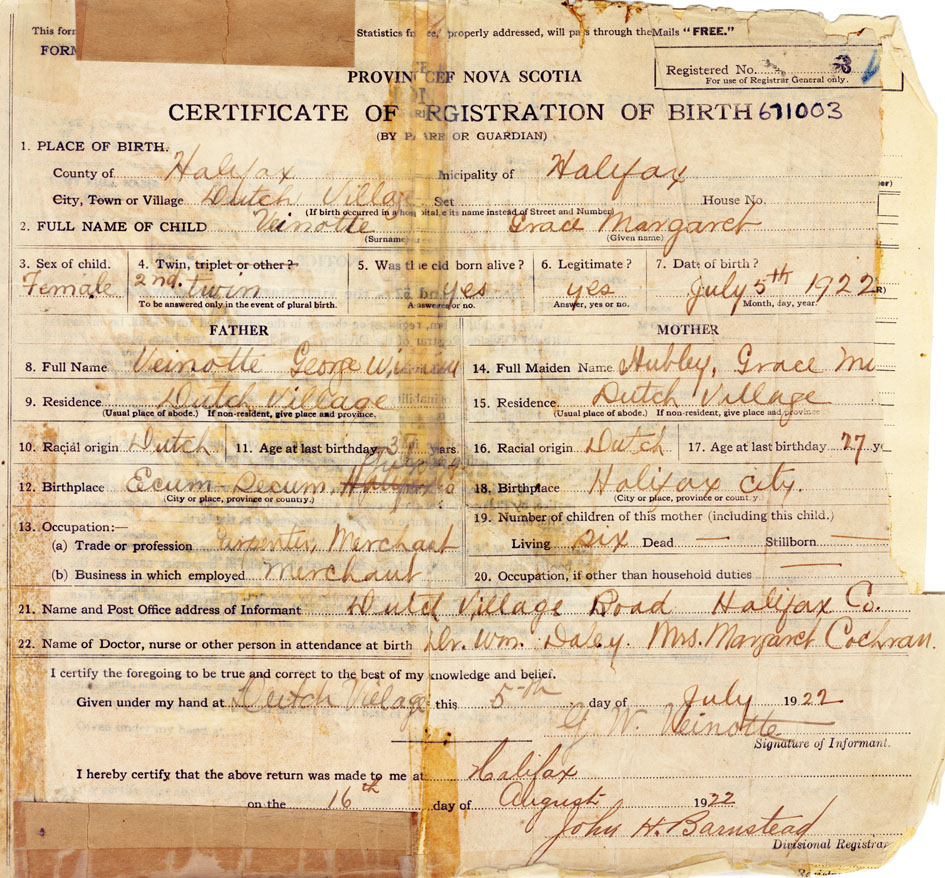 This for Statistics fr ce, properly addressed, will pass through the Mails "FREE."
FORM
PROVINCEF NOVA SCOTIA
Registered No. 3
For use of Registrar General only.
CERTIFICATE OF RGISTRATION OF BIRTH 671003
(BY PARE OR GUARDIAN)
1. PLACE OF BIRTH.
County of Halifax nicipality of Halifax
City, Town or Village Dutch Village Set House No.
(If birth occurred in a hospital, e its name instead of Street and Number)
2. FULL NAME OF CHILD Veinotte Grace Margaret
(Surname) (Given name)
3. Sex of child. 4. Twin, triplet or other? 5. Was the cild born alive? 6. Legitimate? 7. Date of birth?
Female 2nd. twin yes yes July 5th 1922
To be answered only in the event of plural birth. Answer yes or no. Answer, yes or no. Month, day, year.
FATHER MOTHER
8. Full Name Veinotte George 14. Full Maiden Name Hubley, Grace
9. Residence Dutch Village 15. Residence Dutch Village
(Usual place of abode.) If non-resident, give place and province. (Usual place of abode.) If non-resident, give place and province
10. Racial origin Dutch 11. Age at last birthday years. 16. Racial origin Dutch 17. Age at last birthday 27 ye
12. Birthplace Ecum Secum, Halifax 18. Birthplace Halifax City.
(City or place, province or country.) (City or place, province or country.)
13. Occupation:— 19. Number of children of this mother (including this child.)
(a) Trade or profession Carpenter, Merchant Living six Dead — Stillborn —
(b) Business in which employed Merchant 20. Occupation, if other than household duties —
21. Name and Post Office address of Informant Dutch Village Road Halifax Co.
22. Name of Doctor, nurse or other person in attendance at birth Dr. Wm. Daley. Mrs. Margaret Cochran.
I certify the foregoing to be true and correct to the best of my knowledge and belief.
Given under my hand at Dutch Village this 5th day of July 1922
G. W. Veinotte
Signature of Informant.
I hereby certify that the above return was made to me at Halifax
on the 16th day of August 1922
John H. Barnstead
Divisional Registrar